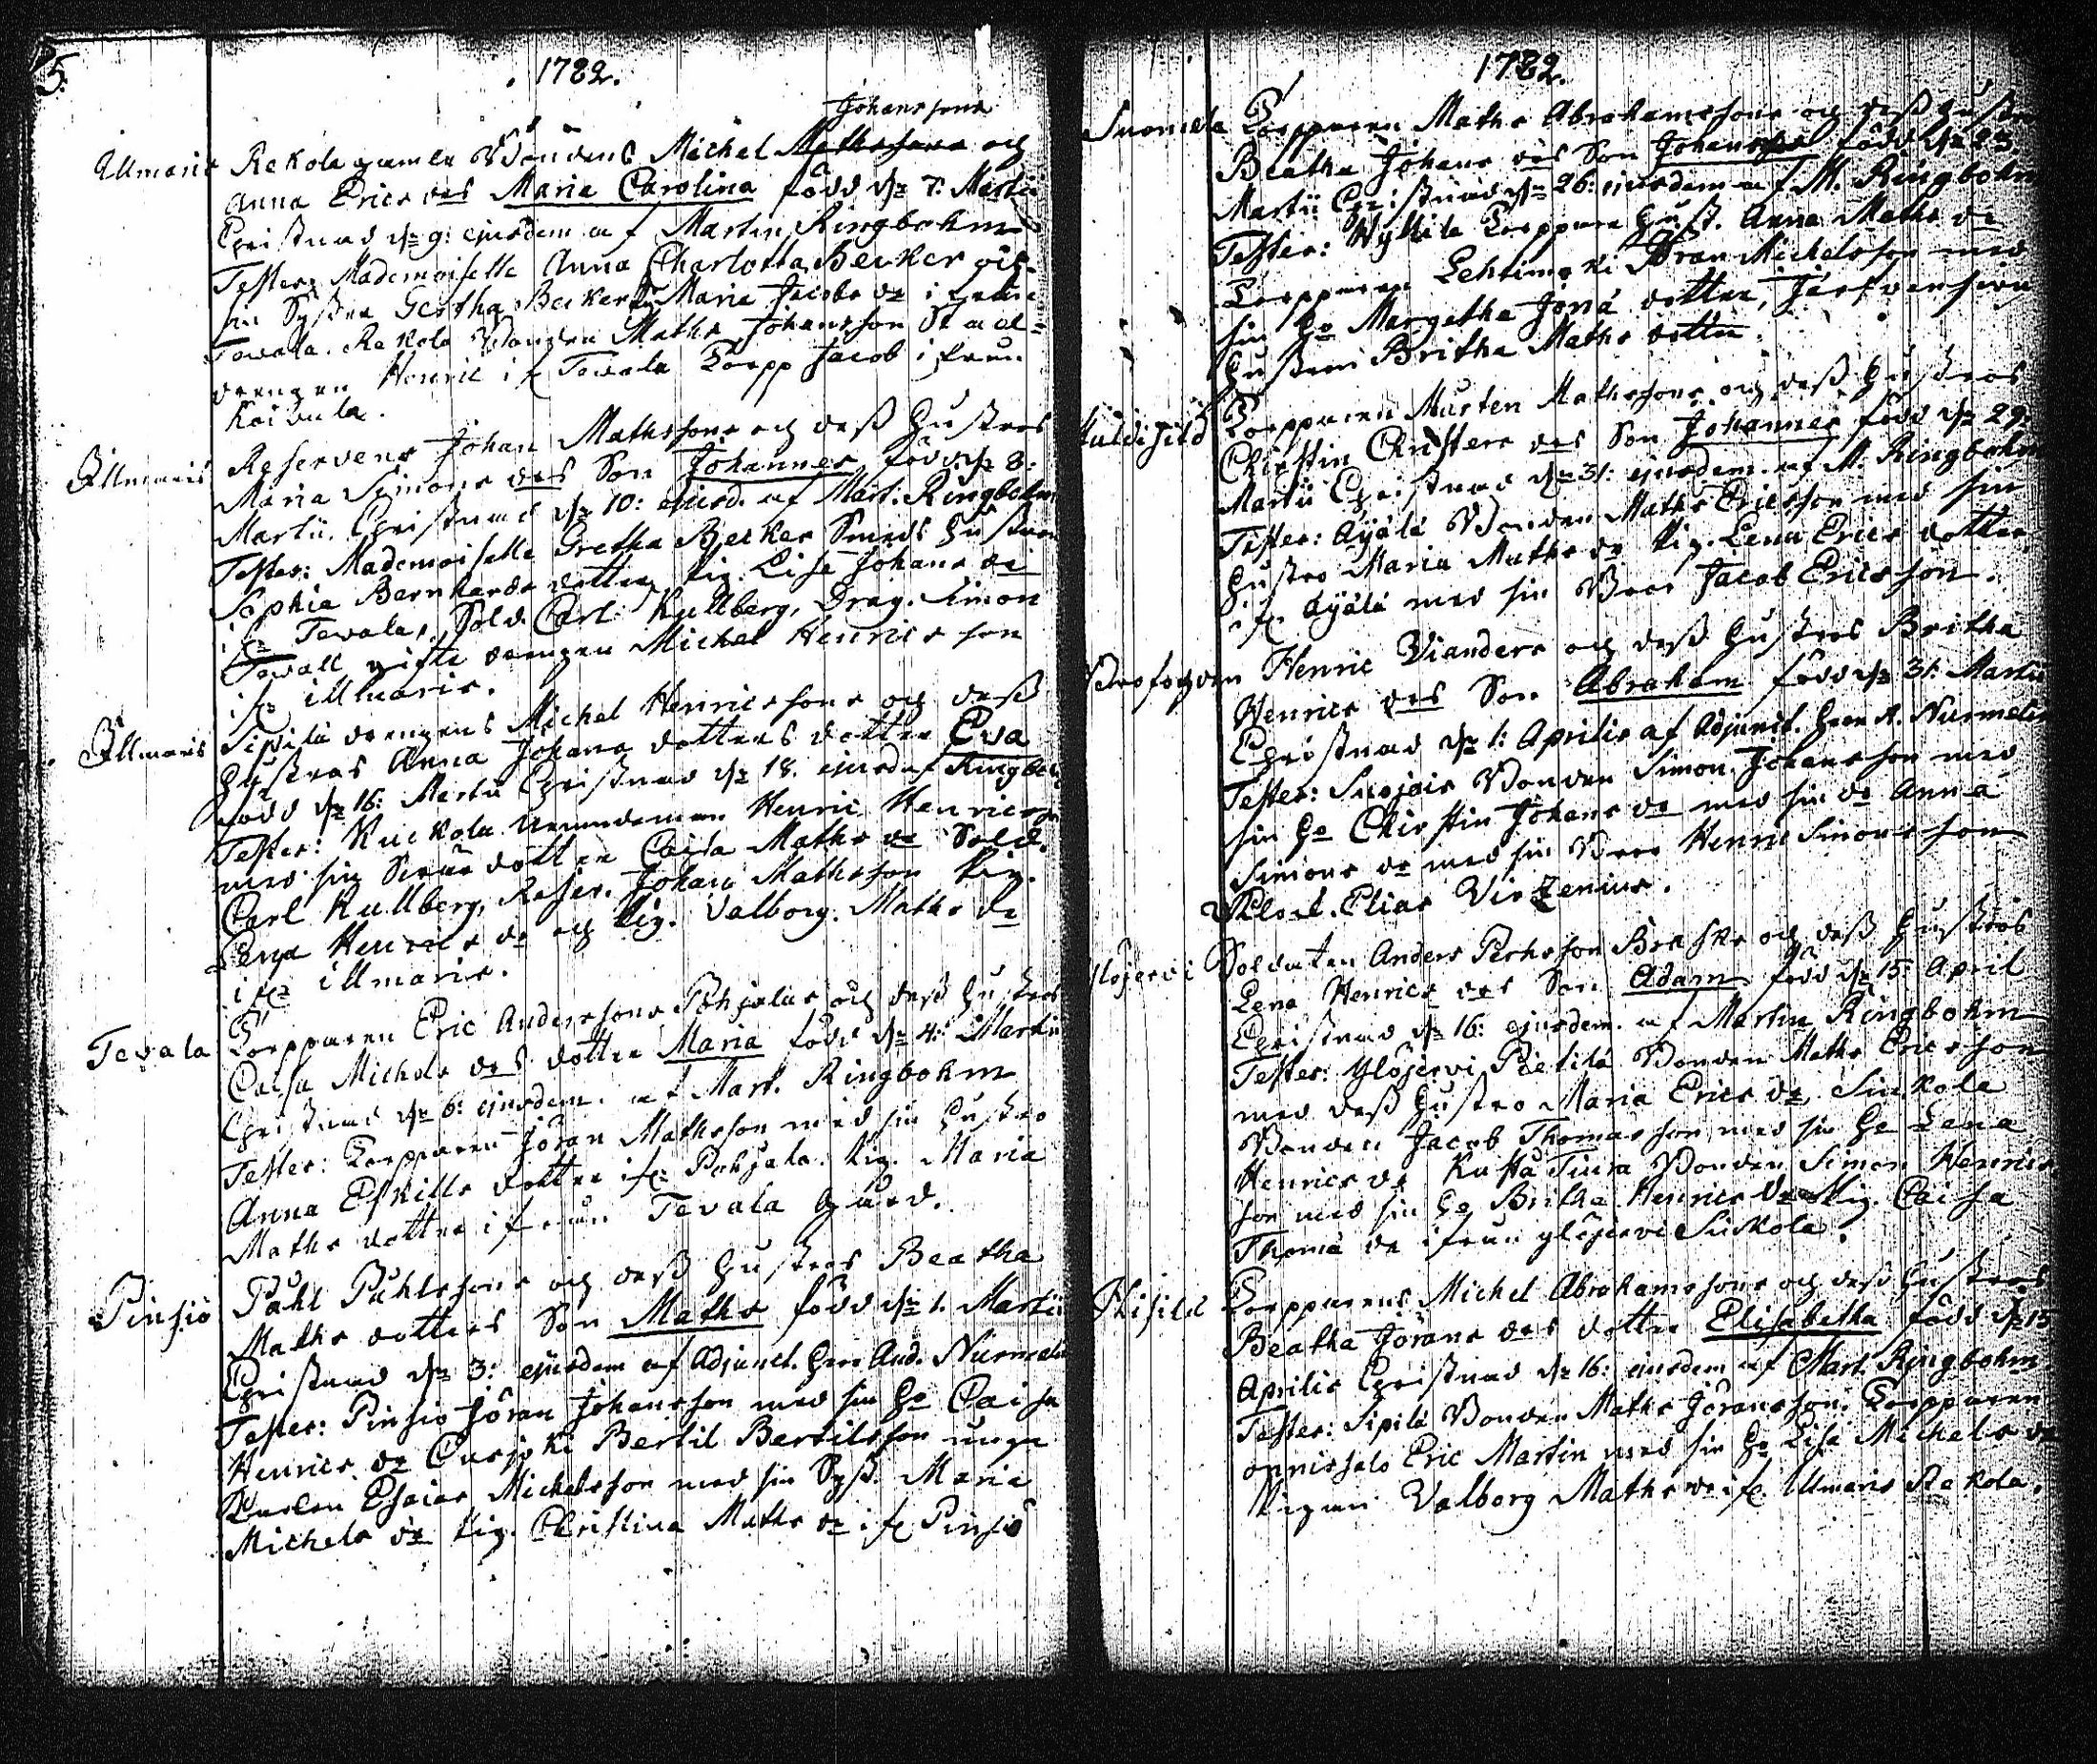 5.
1782.
Johanssons
Illmaris Rekola gamla Bondens Michel Mathssons och
Anna Erics des Maria Carolina född d: 7: Martii
Christnad d: 9: ejusdem af Martin Ringbohm
Testes: Mademoiselle Anna Charlotta Becker och
sin Syster Gertha Becker Maria Jacobs dr i från
Tevala. Rekola Bonden Maths Johansson Stall-
drengen Henric ifr Tevala Torp Jacob i från
Koivula.
Illmaris Reservens Johan Mathssons och dess Hustros
Maria Simons des Son Johannes född d: 8:
Martii. Christnad d: 10: ejusd. af Mart. Ringbohm
Testes: Mademoiselle Gretha Becker Smeds Hustrun
Sophia Bernhards dotter Pig. Lisa Johans dr
ifr Tevala, Sold. Carl Kullberg, Drag. Simon
Tevall gifte drengen Michel Henricsson
ifr illmaris.
Illmaris Sipilä drengens Michel Henricssons och dess
Hustros Anna Johans dotters dotter Eva
född d: 16: Martii Christnad d: 18. ejusd af Ringboh
Testes: Kuckola Nemndeman Henric Henricsson
med sin Sonedotter Caisa Maths dr Sold.
Carl Kullberg, Reser. Johan Mathsson Pig.
Lena Henrics dr och Pig. Valborg Maths dr
ifr illmaris.
Tevala Torpparen Eric Anderssons Pohjalas och dess Hustros
Caisa Michels des dotter Maria född d: 4: Martii
Christnad d: 6: ejusdem. af Mart. Ringbohm
Testes: Torpparen Jöran Mathsson med sin Hustro
Anna Eskills dotter ifr Pohjala. Pig. Maria
Maths dotter ifrån Tevala Gård.
Pinsiö Påhl Påhlssons och dess Hustros Beatha
Maths dotters Son Maths född d: 1. Martii
Christnad d: 3: ejusdem af Adjunct. Herr And. Nurmelin
Testes: Pinsiö Jöran Johansson med sin Ho Caisa
Henrics dr Bertil Bertilsson unge
Karlen Esaias Michelsson med sin Syst. Maria
Michels dr Pig. Christina Maths dr ifr Pinsiö
1782.
Suomela Torpparen Maths Abrahamssons och dess Hustro
Beatha Johans des Son Johannes född d: 23.
Martii Christnad d: 26: ejusdem af M. Ringbohm
Testes: Wyllilä Torppare Hust. Anna Maths dr
Torpparen Lehtimäki Jöran Michelsson med
sin Ho Margetha Jona dotter, Järfvensivu
Hustrun Britha Maths dotter.
Torpparen Mårten Mathssons och dess Hustros
Chirstin Christers des Son Johannes född d: 29:
Martii Christnad d: 31: ejusdem af M. Ringbohm
Testes: Äyälä Bonden Maths Ericsson med sin
Hustro Maria Maths dr Pig. Lena Erics dotter
ifr. Äyälä med sin Bror Jacob Ericsson.
Profogden Henric Vianders och dess Hustros Britha
Henrics des Son Abraham född d: 31: Martii
Christnad d: 1: Aprilis af Adjunct. Herr A. Nurmelin
Testes: Suojois Bonden Simon Johansson med
sin Ho Chirstin Johans dr med sin dr Anna
Simons dr med sin Bror Henric Simonsson
Elias Virzenius.
Ylöjervi Soldaten Anders Brask och dess Hustros
Lena Henrics des Son Adam född d: 15: April
Christnad d: 16: ejusdem. af Martin Ringbohm
Testes: Ylöjervi Pietilä Bonden Maths Ericsson
med dess Hustro Maria Erics dr, Siukola
Bonden Jacob Thomasson med sin Ho Lena
Henrics dr Bonden Simon Henrics
son med sin Ho Britha Henrics dr Pig. Caisa
Thoma dr ifrån ylöjervi Siukola.
Torpparens Michel Abrahamssons och dess Hustros
Beatha Jörans des dotter Elisabetha född d: 15
Aprilis Christnad d: 16: ejusdem af Mart. Ringbohm
Testes: Sipilä Bonden Maths Jöransson Torpparen
Eric Martin med sin Ho Lisa Michels dr
Pigan Valborg Maths dr ifr. Illmaris Rekola.